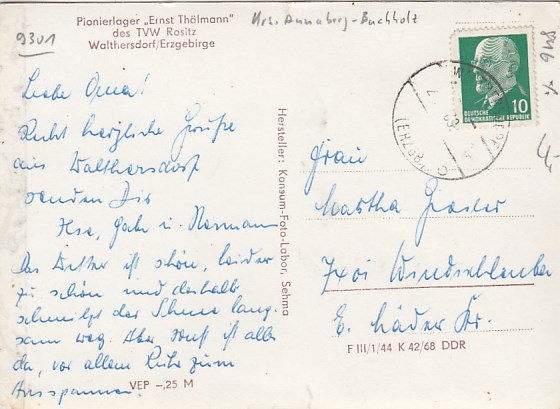 9301
Pionierlager „Ernst Thälmann"
des TVW Rositz
Walthersdorf/Erzgebirge
Krs. Annaberg-Buchholz
Liebe Oma!
Recht herzliche Grüße
aus Walthersdorf
senden Dir
Ilse, Gabi u. Hermann
Das Wetter ist schön, leider
zu schön und deshalb
schmilzt der Schnee lang-
sam weg. Aber sonst ist alles
da, vor allem Ruhe zum
Ausspannen.
VEP -,25 M
Hersteller: Konsum-Foto-Labor, Sehma
10
DEUTSCHE
DEMOKRATISCHE REPUBLIK
(ERZGEB
Frau
Martha
7401 Windischleuba
F III/1/44 K 42/68 DDR